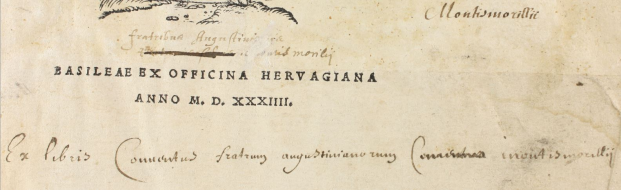 Montismorillii
fratribus Augustinia
montis morilii
BASILEAE EX OFFICINA HERVAGIANA
ANNO M. D. XXXIIII.
Ex libris Conventus fratrum augustinianorum Conventus montismorillii